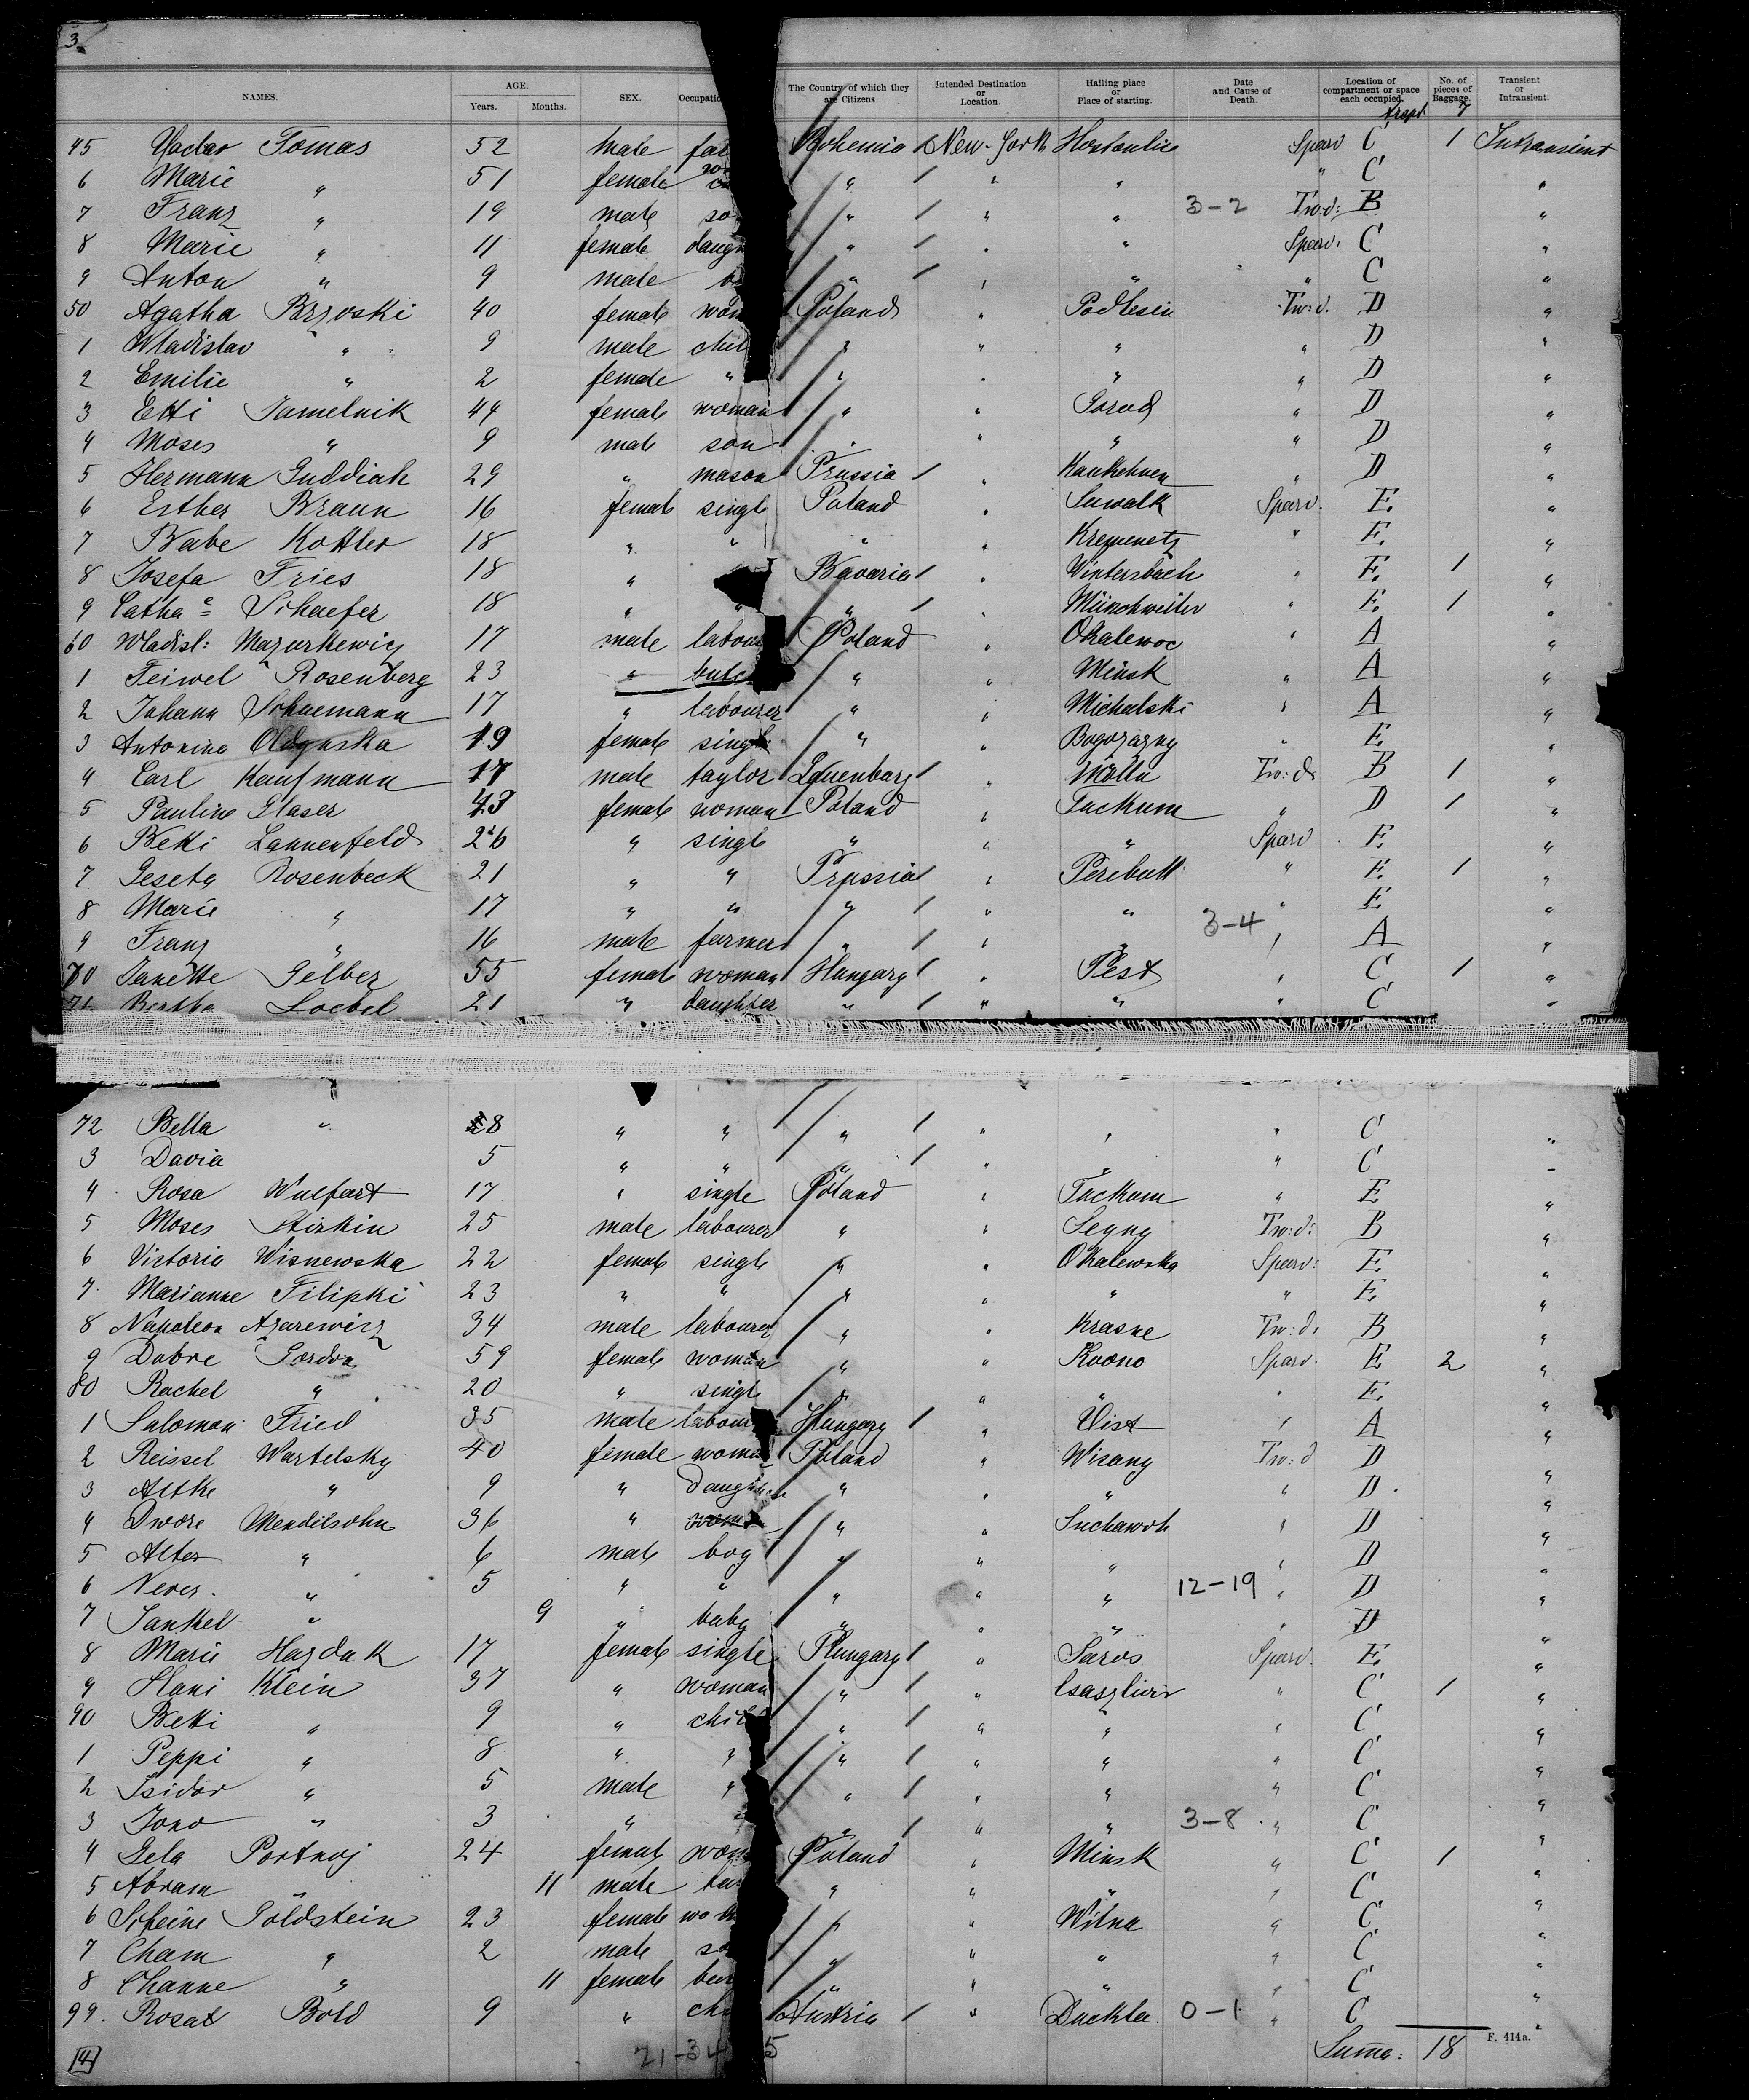 3
NAMES. AGE. Years. Months. SEX. Occupatio The Country of which they are Citizens Intended Destination or Location. Hailing place or Place of starting. Date and Cause of Death. Location of compartment or space each occupied. No. of pieces of Baggage. Transient or Intransient.
7
45 Tomas 52 male far Bohemia New-York Spard C 1 Intransient
6 Marie " 51 female " " " " C "
7 Franz " 19 male so " " " 3-2 Tw:d: B "
8 Marie " 11 female daugh " " " Spard. C "
9 Anton " 9 male " " " " C "
50 Agatha Brzoski 40 female wom Poland " Podlesin Tw:d. D "
1 Wladislav " 9 male chil " " " " D "
2 Emilie " 2 female " " " " " D "
3 Etti 44 female woman " " " D "
4 Moses " 9 male son " " " " D "
5 Hermann Guddiah 29 " mason Prussia " Kaukehnen " D "
6 Esther Braun 16 female single Poland " Suwalk Spard. E. "
7 Babe Kotler 18 " " " " Kremenetz " E. "
8 Josefa Fries 18 " Bavaria " Wintersbach " E. 1 "
9 Catha e Schaefer 18 " " " " Münchweiler " E. 1 "
60 Wladisl: Mazurkewicz 17 male labour Poland " Okalewoc " A "
1 Feiwel Rosenberg 23 " butc " " Minsk " A "
2 Johann Schuemann 17 " labourer " " Michalski " A "
3 Antonina 19 female single " " " E. "
4 Carl Kaufmann 17 male taylor Lauenburg " Mölln Tw:d. B 1 "
5 Pauline Glaser 43 female woman Poland " Tuckum " D 1 "
6 Betti Lannenfeld 26 " single " " " Spard E "
7 Rosenbeck 21 " " Prussia " " E. 1 "
8 Marie " 17 " " " " " " E. "
9 Franz " 16 male farmer " " " 3-4 " A "
70 Janette Gelber 55 female woman Hungary " Pest " C 1 "
71 Bertha Loebel 21 " daughter " " " " C "
72 Bella " 8 " " " " " " C "
3 5 " " " " " " C "
4 Rosa Wulfart 17 " single Poland " Tuckum " E "
5 Moses 25 male labourer " " Seyny Tw:d: B "
6 Victoria Wisnewska 22 female single " " Okalewska Spard: E "
7 Marianne Filipki 23 " " " " " " E. "
8 Napoleon Azarewicz 34 male labourer " " Kraske Tw:d. B "
9 Dobre Gordon 59 female woman " " Kowno Spard. E 2 "
80 Rachel " 20 " single " " " " E "
1 Salomon Fried 35 male labour Hungary " " A "
2 Reissel Wartelsky 40 female woman Poland " Wisany Tw:d D "
3 " 9 " daughter " " " " D "
4 Dwore Mendelsohn 36 " woma " " Suchawoh " D "
5 Alter " 6 male boy " " " " D "
6 " 5 " " " " " 12-19 " D "
7 Jankel " 9 " baby " " " " D "
8 Marie Hazdak 17 female single Hungary " Saros Spard. E. "
9 Hani Klein 37 " woman " " " C 1 "
90 Betti " 9 " chil " " " " C "
1 Peppi " 8 " " " " " " C "
2 Isidor " 5 male " " " " " C "
3 " 3 " " " " 3-8 " C "
4 Gela Portnoj 24 female wom Poland " Minsk " C 1 "
5 Abram " 11 male " " " " C "
6 Scheine Goldstein 23 female wo " " Wilna " C "
7 Cham " 2 male so " " " " C "
8 Channe " 11 female " " " " C "
99. Bold 9 " ch Austria " Duckla. 0-1 " C "
[4] 21-34 5 Suma: 18 F. 414a.